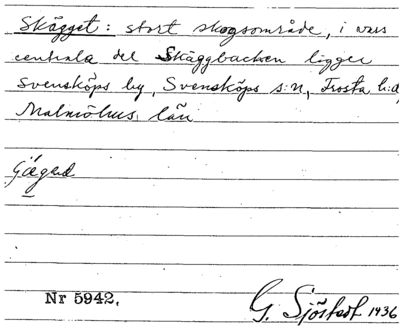 Skägget: stort skogsområde, i vars
centrala del Skäggbacken ligger
Svensköps by, Svensköps s:n, Frosta h:d,
Malmöhus län
Nr 5942.
G. Sjöstedt 1936